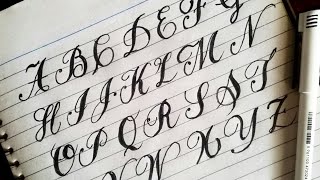 A B C D E F G
H I J K L M N
O P Q R S T
V W X Y Z